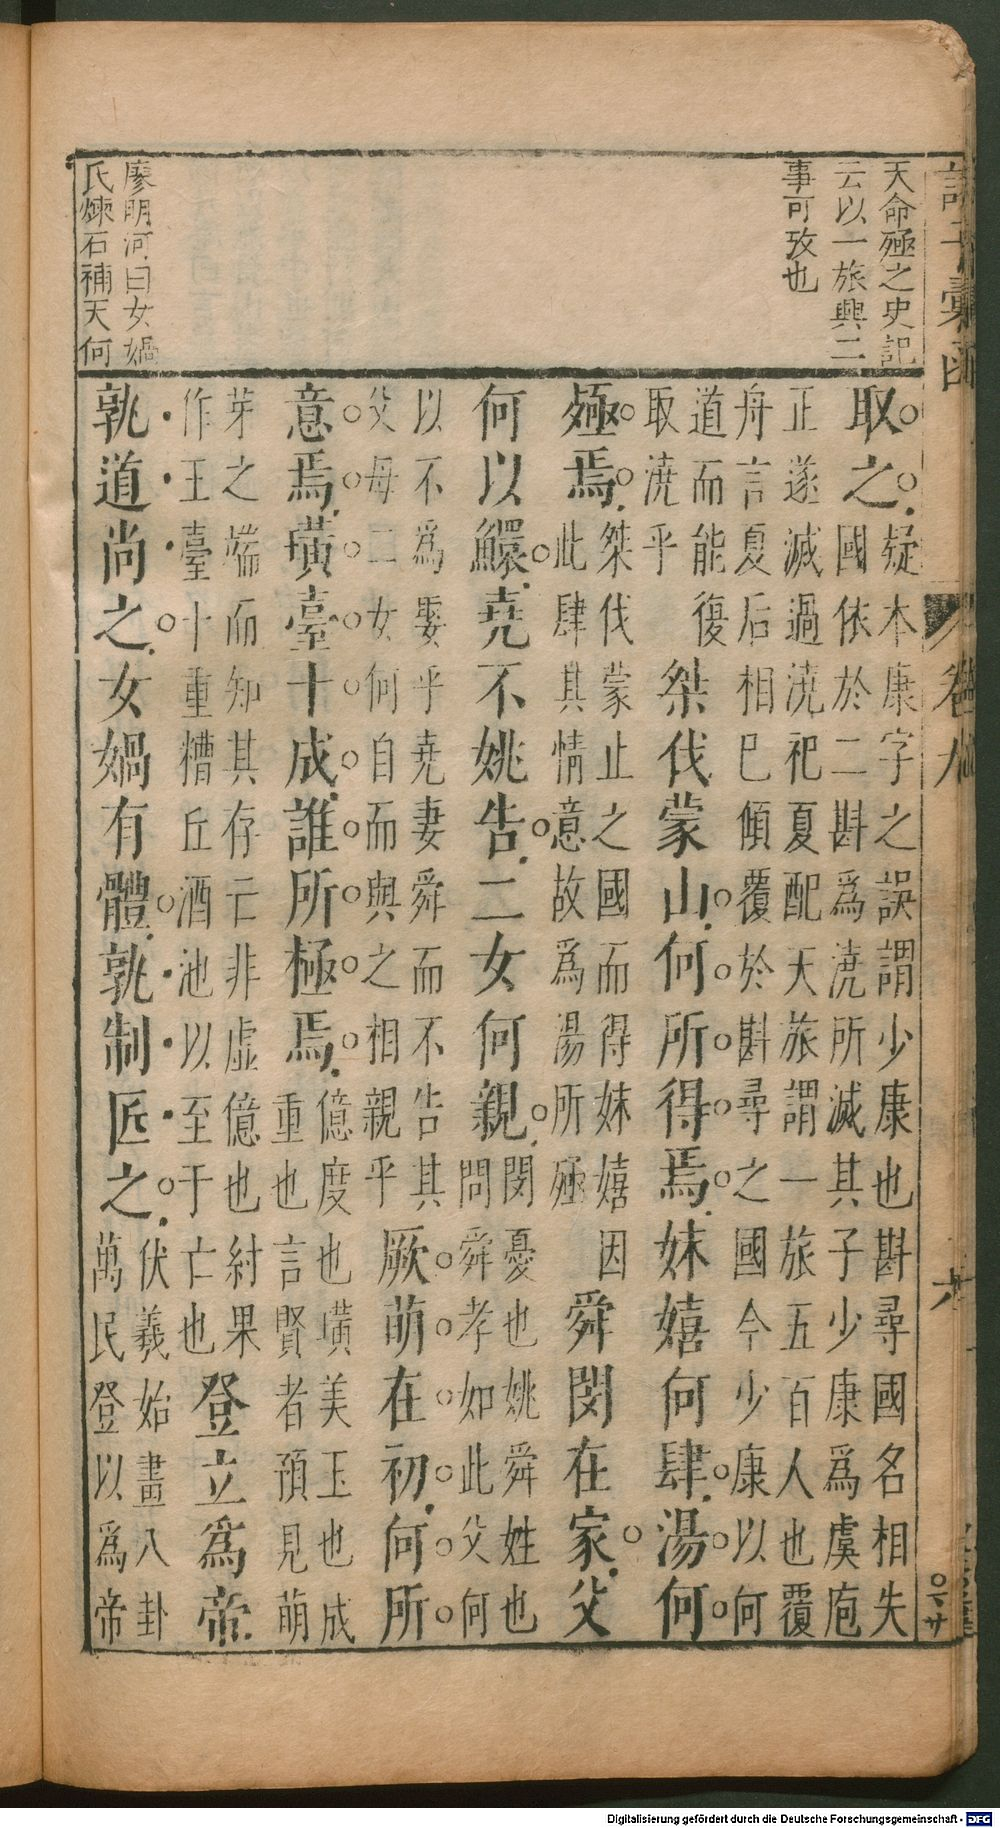 天命殛之史記
云以一旅興二
事可攷也
廖明河曰女媧
氏煉石補天何
諸子彙函
卷九
取之
疑本康字之誤謂少康也斟尋國名相失
國依於二斟爲澆所滅其子少康爲虞庖
正遂滅過澆祀夏配天旅謂一旅五百人也覆
舟言夏后相已傾覆於斟尋之國今少康以何
道而能復
取澆乎
桀伐蒙山何所得焉妹嬉何肆湯何
殛焉
桀伐蒙止之國而得妹嬉因
此肆其情意故爲湯所殛
舜閔在家父
何以鱞堯不姚告二女何親
閔憂也姚舜姓也
問舜孝如此父何
以不爲娶乎堯妻舜而不告其
父母二女何自而與之相親乎
厥萌在初何所
意焉璜臺十成誰所極焉
億度也璜美玉也成
重也言賢者預見萌
芽之端而知其存亡非虛億也紂果
作王臺十重糟丘酒池以至于亡也
登立爲帝
孰道尚之女媧有體孰制匠之
伏羲始畫八卦
萬民登以爲帝
Digitalisierung gefördert durch die Deutsche Forschungsgemeinschaft - DFG